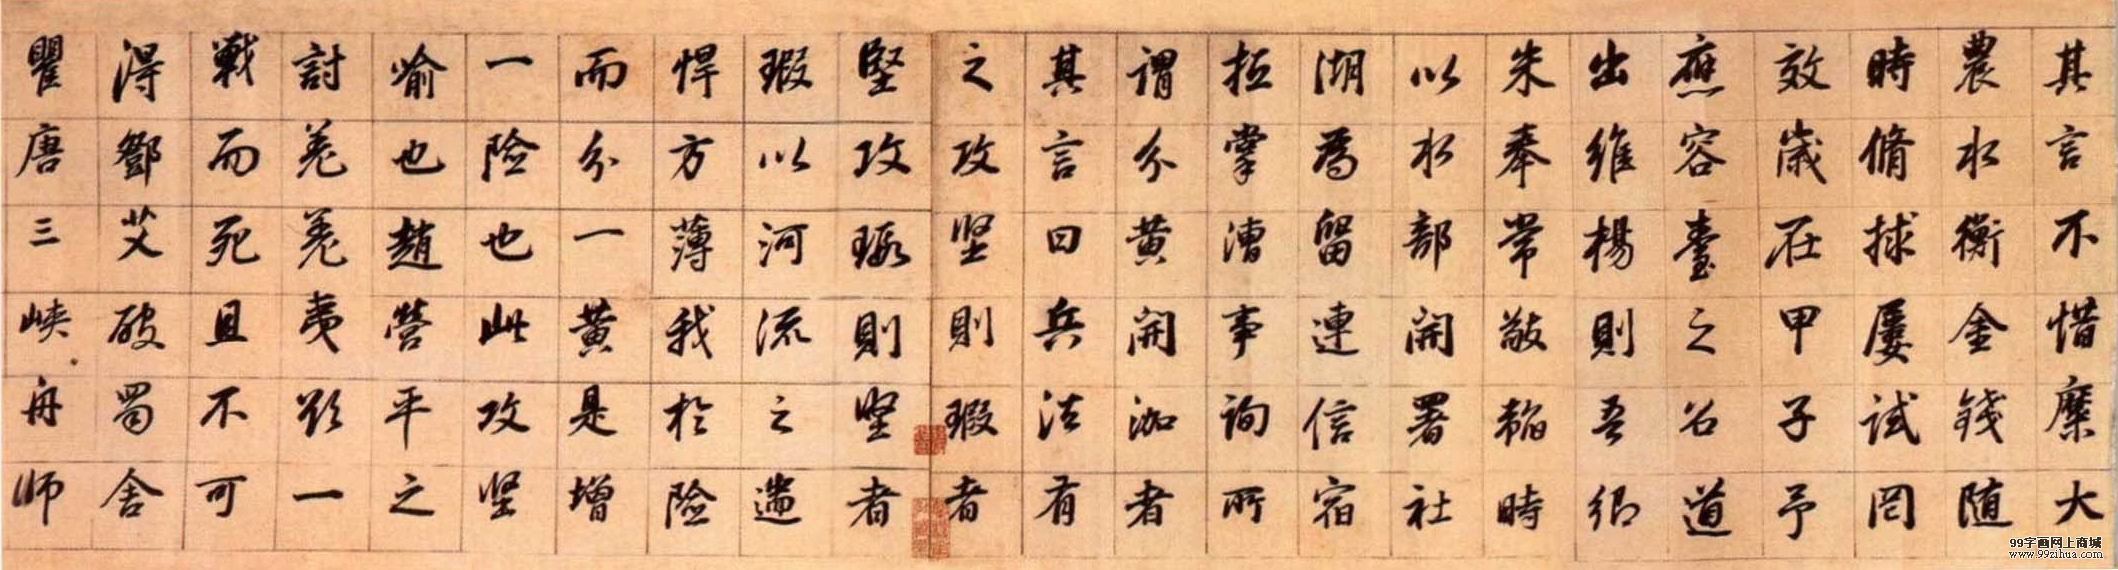 其言不惜糜大
農水衡金錢随
時脩捄屡試罔
效歲在甲子予
應容臺之召道
出維楊則吾鄉
朱奉常敬韜時
以水部開署社
湖為留連信宿
抵掌漕事詢所
謂分黄開泇者
其言曰兵法有
之攻堅則瑕者
堅攻瑕則堅者
瑕以河流之遄
悍方薄我於險
而分一黄是增
一險也此攻堅
喻也趙营平之
討羌羌夷欲一
戰而死且不可
得鄧艾破蜀舍
瞿唐三峡舟師
99字画网上商城
www.99zihua.com